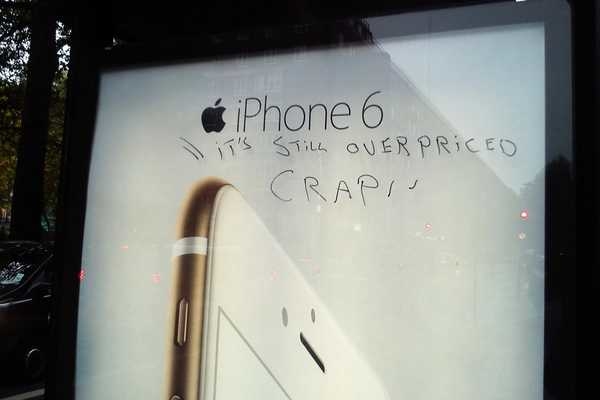 iPhone 6
" iT'S STiLL OVERPRiCED
CRAP"